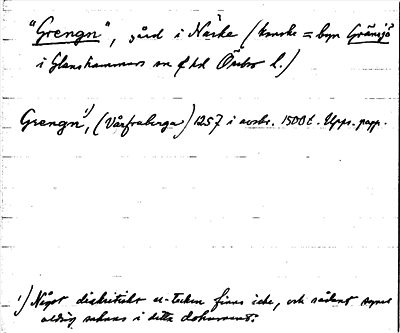 "Grengn", gård i Närke (kanske = byn Gränsjö
i Glanshammars sn o. hd Örebro l.)
Grengn¹⁾, (Vårfruberga) 1257 i avskr. 1500 t. Upps. papp.
¹⁾ Något diakritiskt u-tecken finns icke, och sådant synes
aldrig saknas i detta dokument.